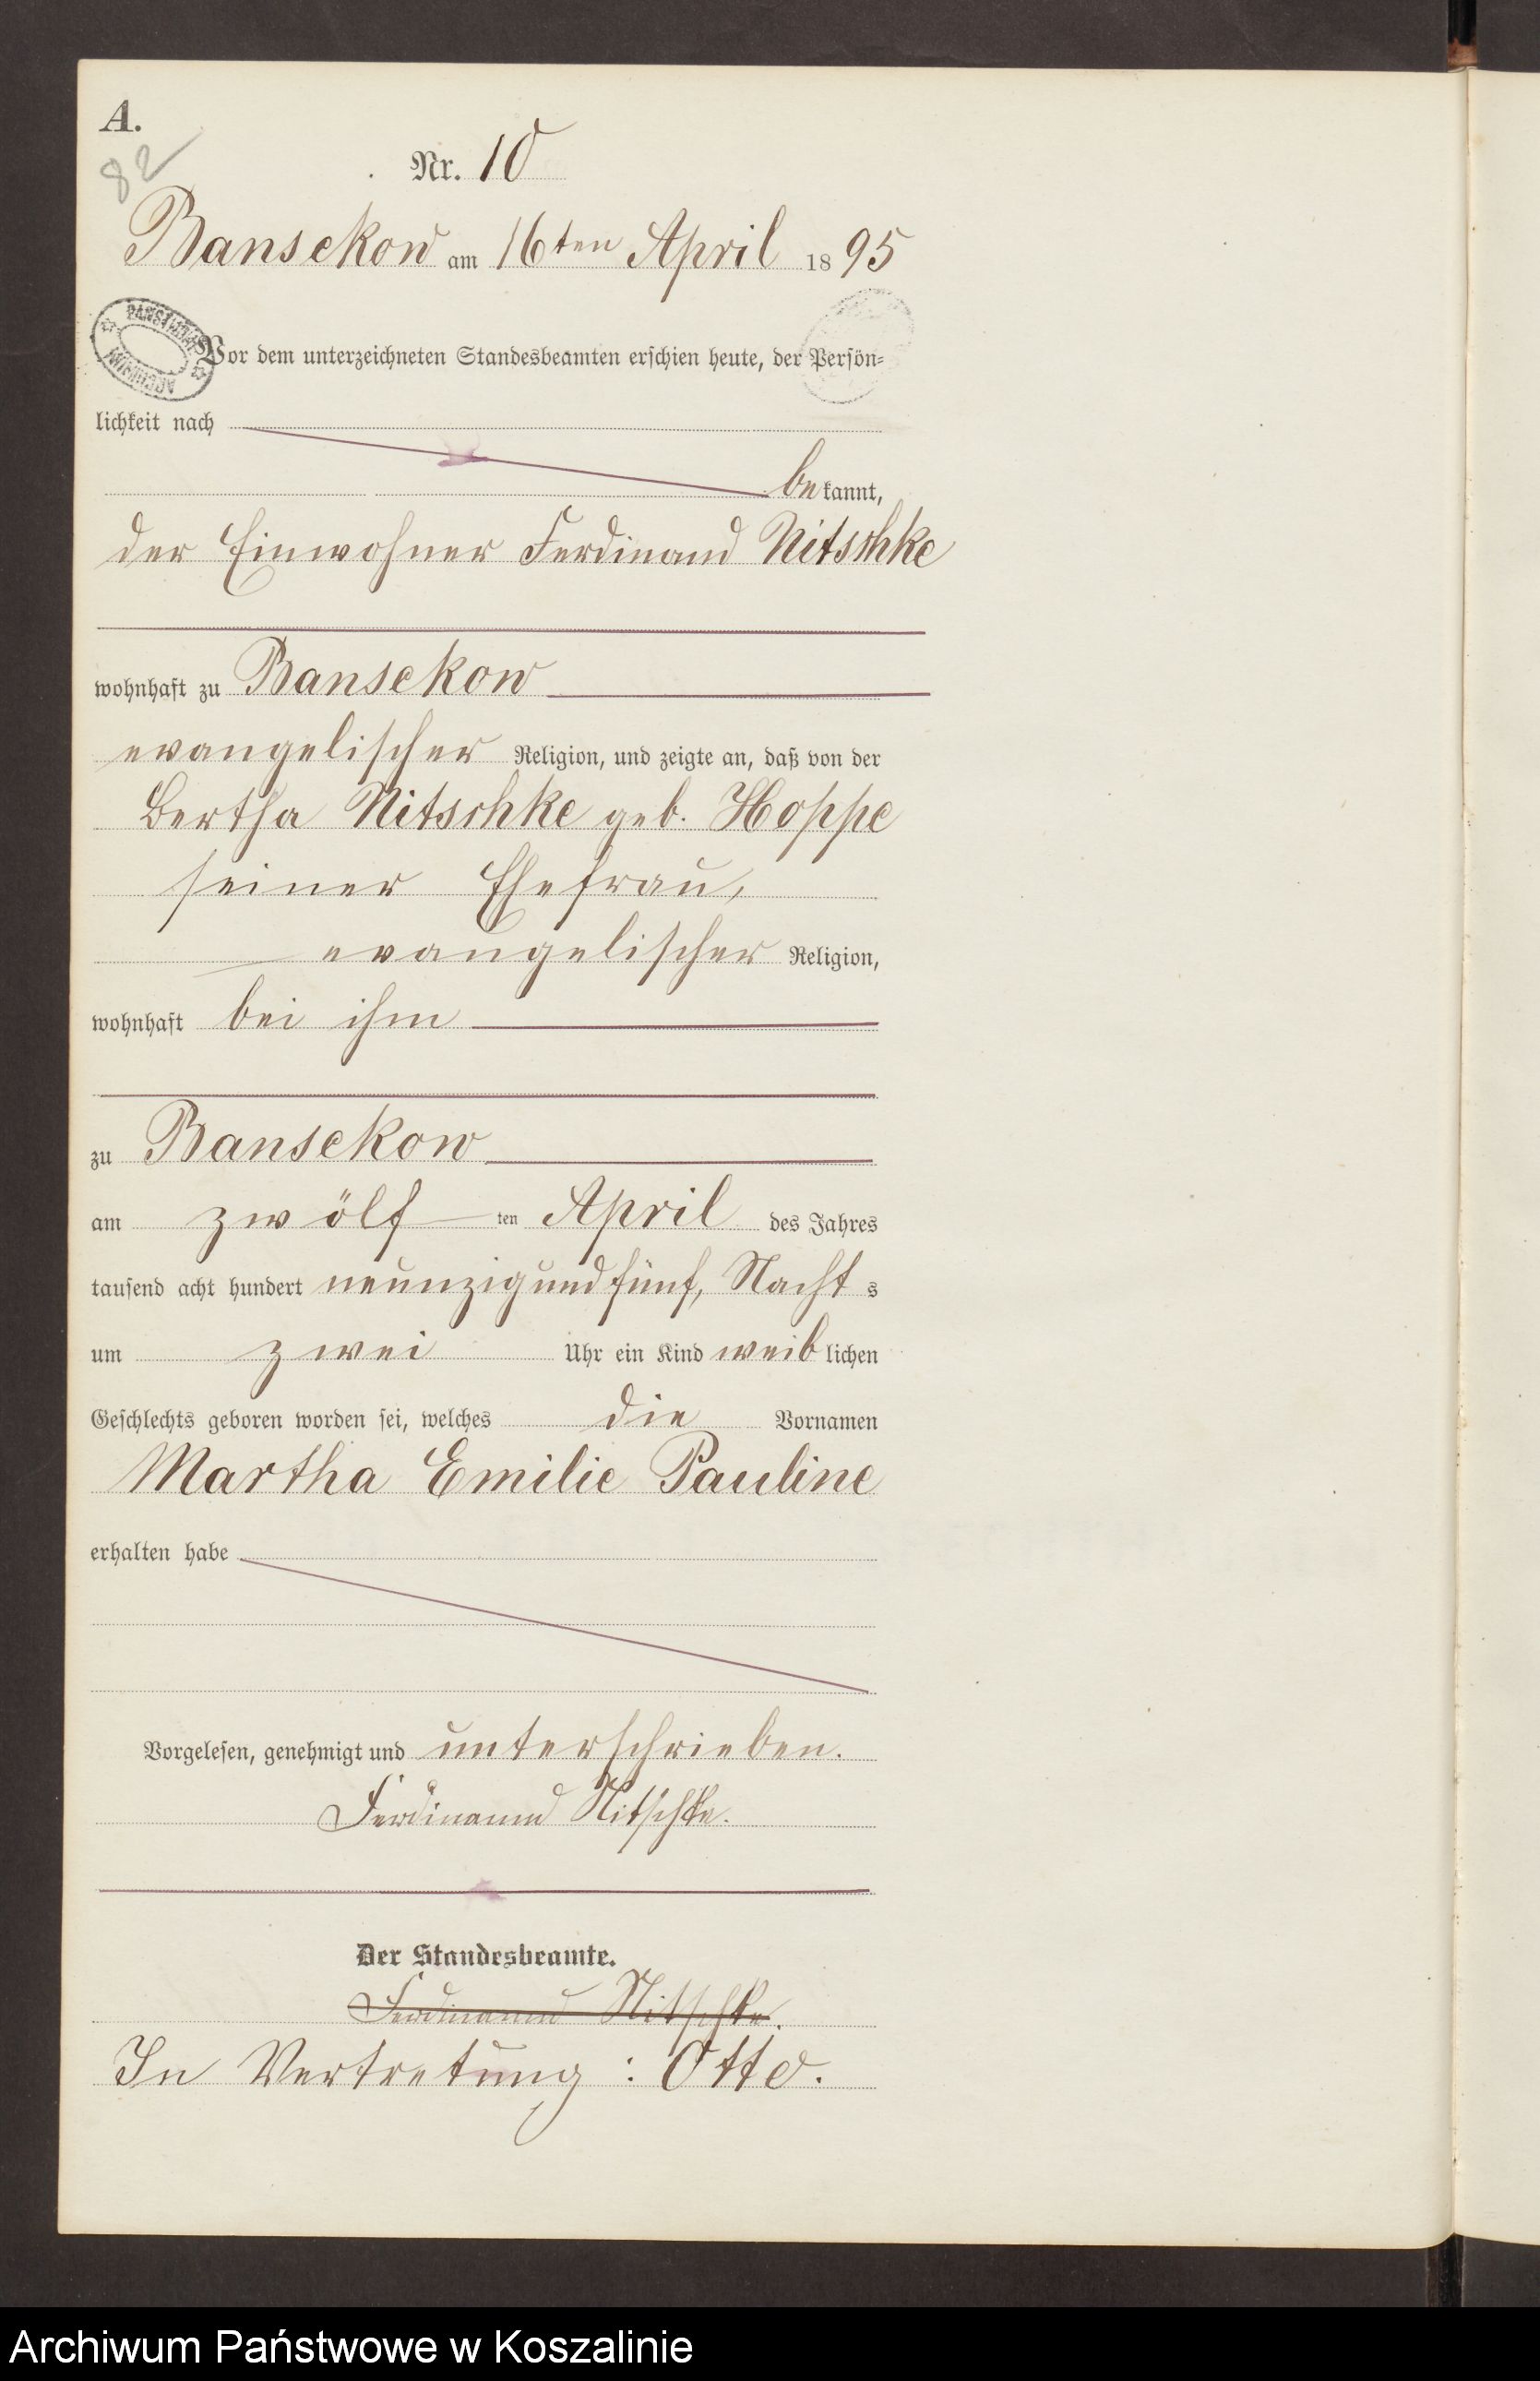 A.
82
Nr. 10
Bansekow am 16ten April 1895
Vor dem unterzeichneten Standesbeamten erschien heute, der Persön=
lichkeit nach
bekannt,
der Einwohner Ferdinand Nitschke
wohnhaft zu Bansekow
evangelischer Religion, und zeigte an, daß von der
Bertha Nitschke geb. Hoppe
seiner Ehefrau,
evangelischer Religion,
wohnhaft bei ihm
zu Bansekow
am zwölf ten April des Jahres
tausend acht hundert neunzig und fünf, Nachts
um zwei Uhr ein Kind weiblichen
Geschlechts geboren worden sei, welches die Vornamen
Martha Emilie Pauline
erhalten habe
Vorgelesen, genehmigt und unterschrieben.
Ferdinand Nitschke.
Der Standesbeamte.
Ferdinand Nitschke.
In Vertretung: Otto.
Archiwum Państwowe w Koszalinie